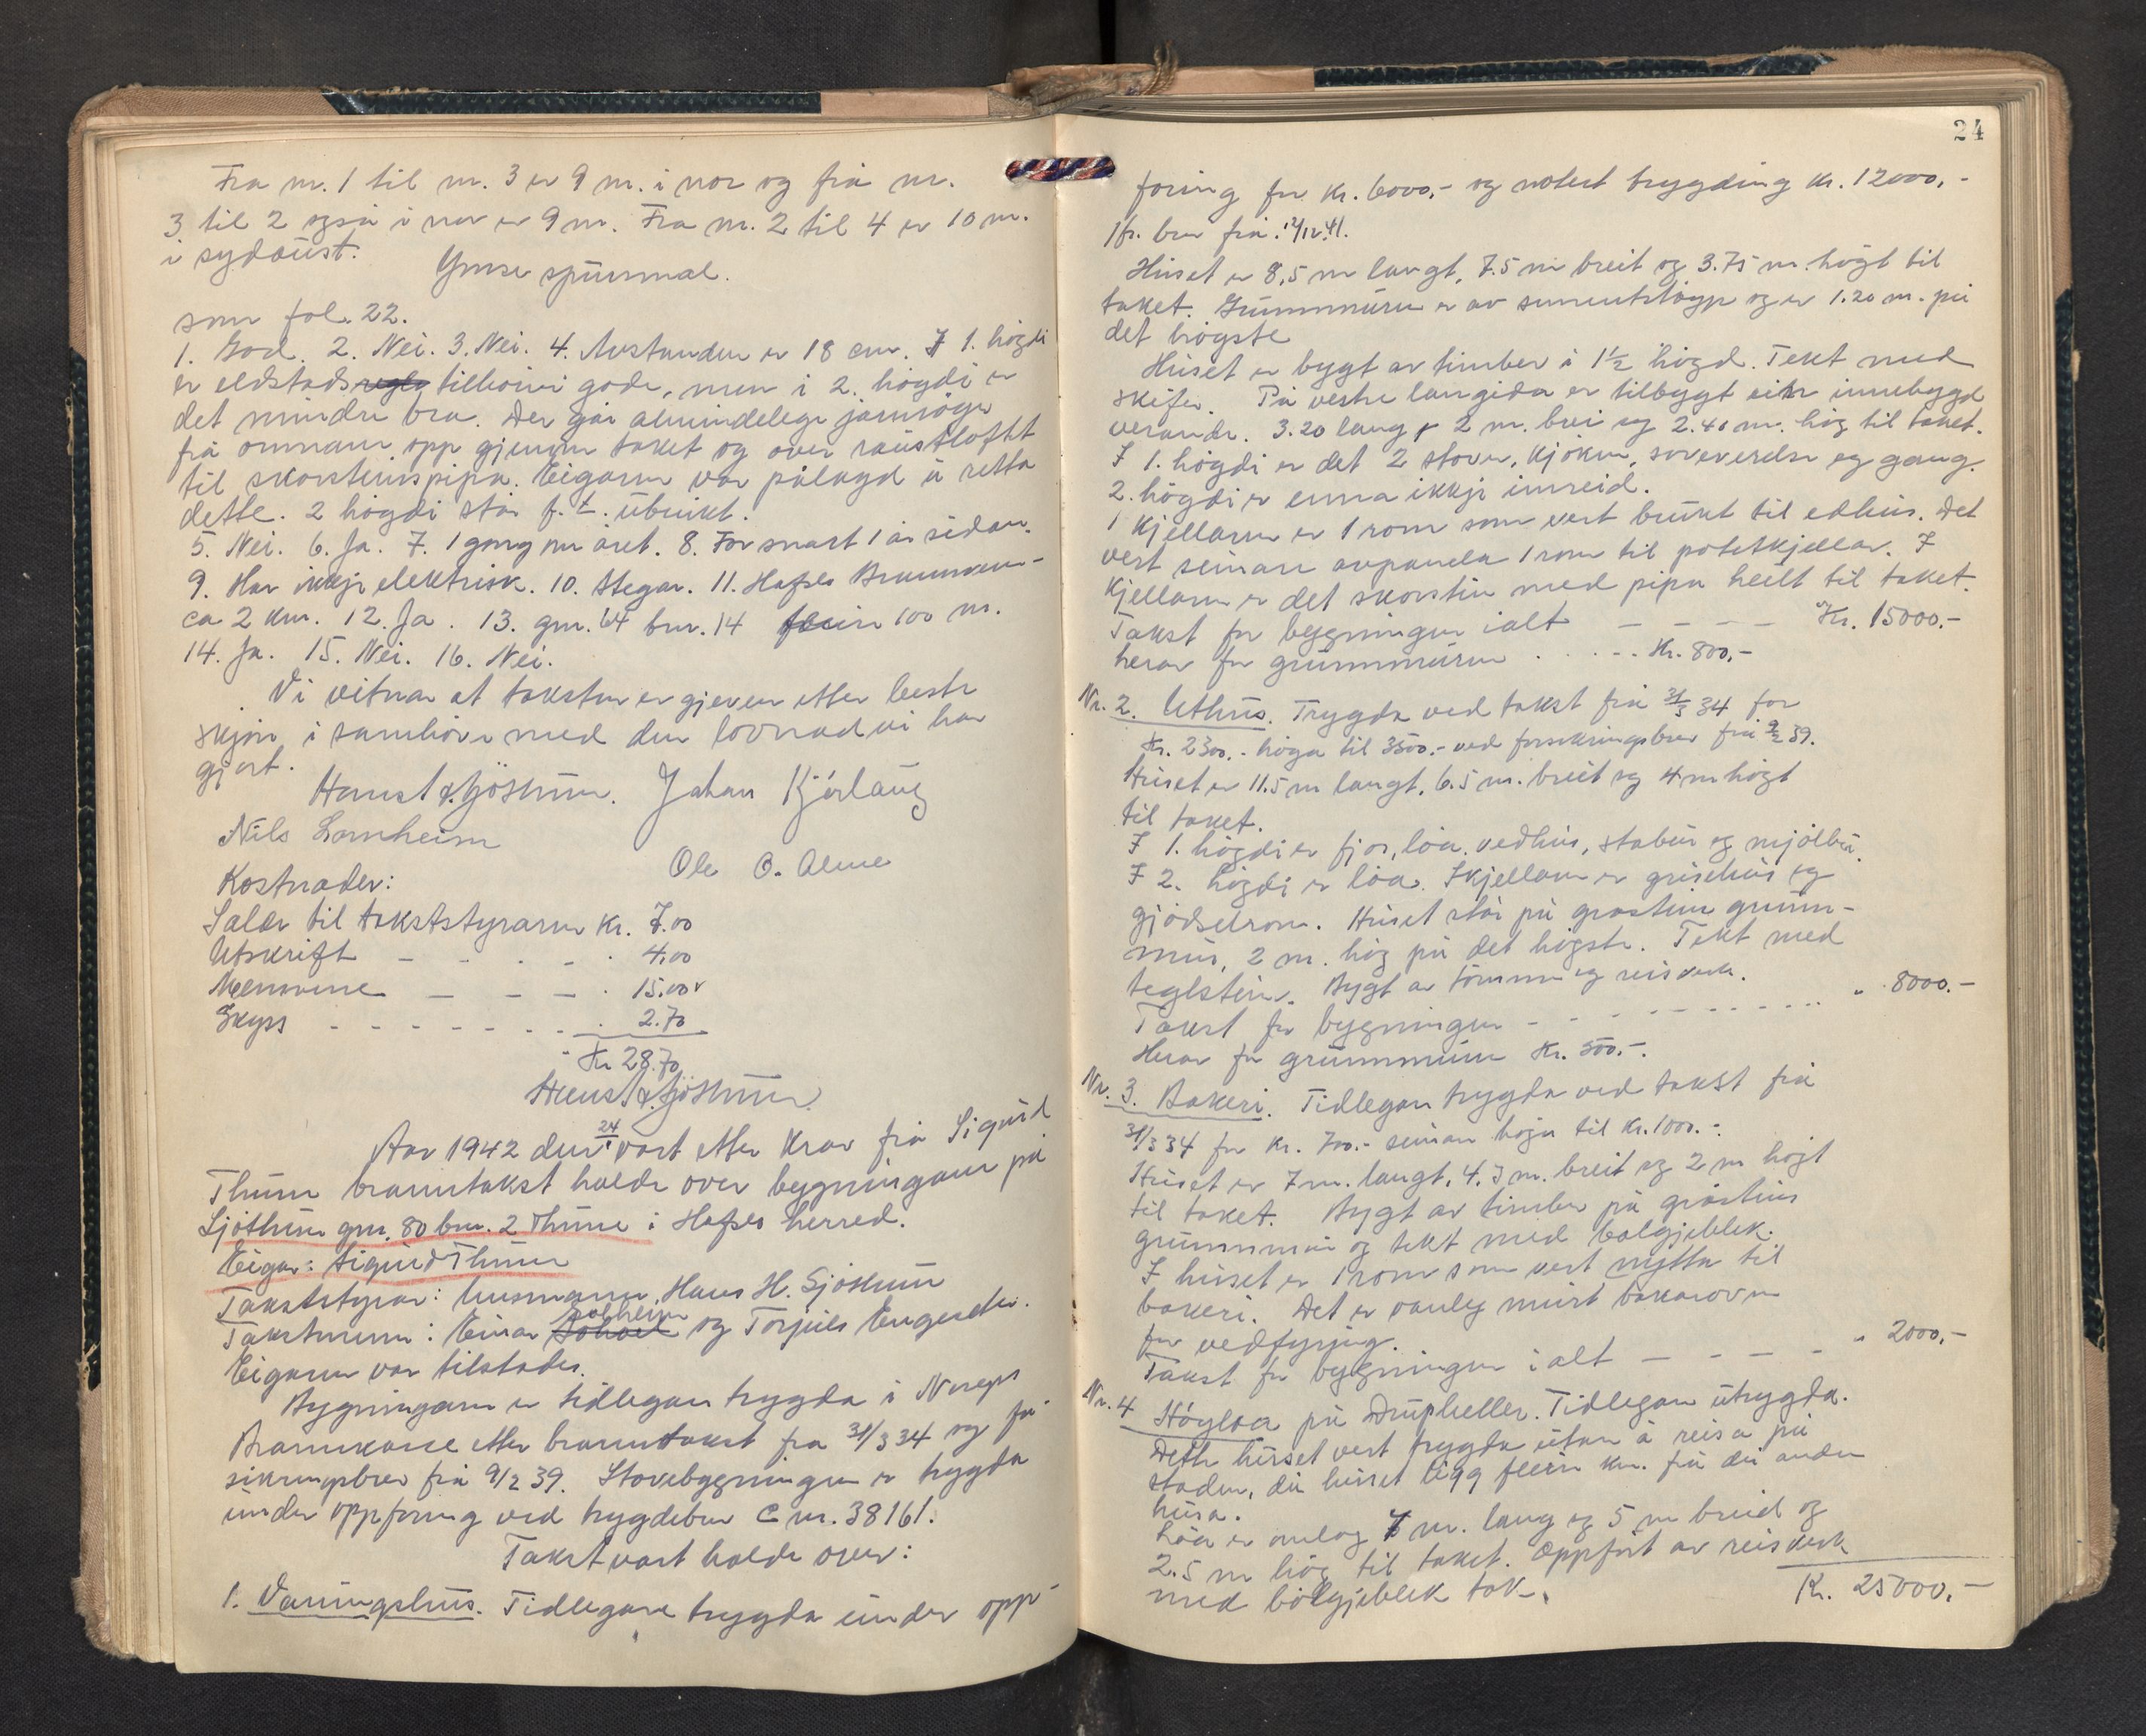 Fra nr. 1 til nr. 3 er 9 m. i nor og frå nr.
3 til 2 også i nor er 9 m. Fra nr. 2 til 4 er 10 m.
i sydaust.
Ymse spursmal.
som fol. 22.
1. God. 2. Nei. 3. Nei. 4. Avstanden er 18 cm. I 1. högdi
er eldstads tilhövi gode, men i 2. högdi er
det mindre bra. Der går almindelege jarnröyr
frå omnane opp gjenom taket og over raustloftet
til skorsteinspipa. Eigaren var pålagd å retta
dette. 2 högdi står f. t. ubrukt.
5. Nei. 6. Ja. 7. 1 gong om året. 8. For snart 1 år sidan.
9. Har ikkje elektrisk. 10. Stegar. 11. Hafslo Brunnen
ca 2 km. 12. Ja. 13. gnr. 64 bnr. 14 100 m.
14. Ja. 15. Nei. 16. Nei.
Vi vitnar at taksten er gjeven etter beste
skjön i samhöve med den lovnad vi har
gjort.
Hans H. Sjöthun. Johan Kjörlaug
Nils Lomheim
Ole O. Alme
Kostnader:
Salær til takststyraren Kr. 7.00
Utskrift - - - - 4.00
Mennene - - - 15.00
Skyss - - - - - - 2.70
Kr 28.70
Hans H. Sjöthun.
Aar 1942 den 24 vart etter krav frå Sigurd
Thune branntakst halde over bygningane på
Sjöthun gnr. 80 bnr. 2 Thune i Hafslo herred.
Eigar: Sigurd Thune
Takststyrar: lensmann Hans H. Sjöthun
Takstmenn: Einar Solheim og Torgils Engesete.
Eigaren var tilstades.
Bygningane er tidlegare trygda i Noregs
Brannkasse etter branntakst fra 31/3 34 og for-
sikringsbrev frå 9/2 39. Stovebygningen er trygda
under oppföring ved trygdebrev C nr. 38161.
Takst vart halde over:
1. Vaaningshus. Tidlegare trygda under opp-
24
föring for Kr. 6000,- og notert trygding Kr. 12000,-
Jfr. brev frå 12/12.41.
Huset er 8,5 m langt, 7.5 m breit og 3.75 m. högt til
taket. Grunnmuren er av sementstöyp og er 1.20 m. på
det högste
Huset er bygt av timber i 1½ högd. Tekt med
skifer. På vestre langsida er tilbygt ein innebygd
verande. 3.20 lang, 2 m. brei og 2.40 m. hög til taket.
I 1. högdi er det 2 stover, kjöken, soveverelse og gang.
2. högdi er enna ikkje innreid.
I kjellaren er 1 rom som vert brukt til eldhus. Det
vert seinare avpanela 1 rom til potetkjellar. I
kjellaren er det skorstein med pipa heilt til taket.
Takst for bygningen ialt - - - - Kr. 15000.-
herav for grunnmuren . . - - Kr. 800,-
Nr. 2. Uthus. Trygda ved takst frå 31/3 34 for
Kr. 2300.- höga til 3500.- ved forsikringsbrev frå 9/2 39.
Huset er 11.5 m langt, 6.5 m. breit og 4 m högt
til taket.
I 1. högdi er fjos, löa, vedhus, stabur og mjölbu.
I 2. högdi er löa. I kjellaren er grisehus og
gjödselrom. Huset står på gråstein grunn-
mur, 2 m. hög på det högste. Tekt med
teglstein. Bygt av tömmer og reisverk.
Takst for bygningen - - - - - - - " 8000.-
Herav for grunnmuren Kr. 500.-.
Nr. 3. Bakeri. Tidlegare trygda ved takst frå
31/3 34 for Kr. 700.- seinare höga til Kr. 1000.-.
Huset er 7 m. langt, 4.3 m. breit og 2 m högt
til taket. Bygt av timber på gråsteins
grunnmur og tekt med bölgjeblek.
I huset er 1 rom som vert nytta til
bakeri. Det er vanleg murt bakarovn
for vedfyring.
Takst for bygningen ialt - - - - " 2000,-
Nr. 4 Höyloa på Drupheller. Tidlegare utrygda.
Dette huset vert trygda utan å reisa på
staden, då huset ligg fleire km. frå dei andre
husa.
Löa er omlag 7 m. lang og 5 m breid og
2.5 m hög til taket. Oppfört av reisverk
med bölgjeblek tak.
Kr. 25000.-